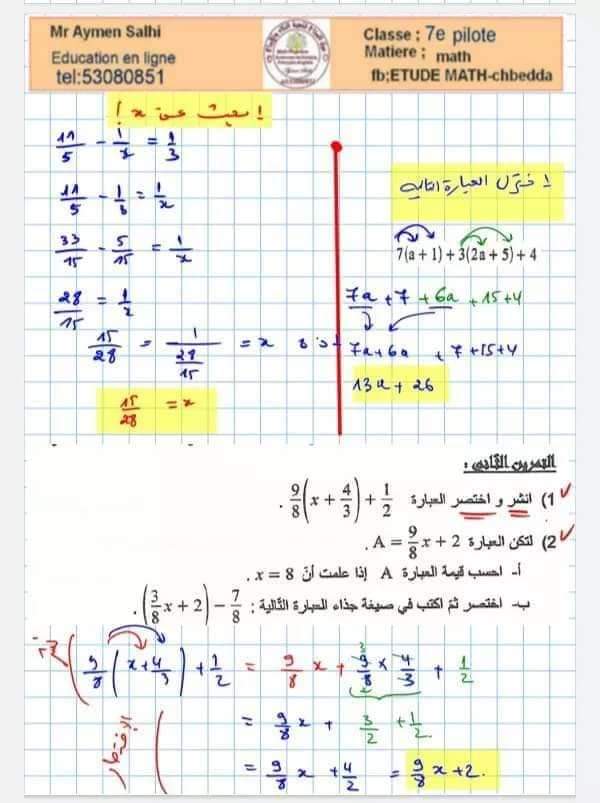 Mr Aymen Salhi
Education en ligne
tel:53080851
Classe ; 7e pilote
Matiere ; math
fb;ETUDE MATH-chbedda
ابحث عن x !
11/5 - 1/x = 1/3
11/5 - 1/3 = 1/x
33/15 - 5/15 = 1/x
28/15 = 1/x
15/28 = 1/(28/15) = x إذن
15/28 = x
اختزل العبارة التالية
7(a + 1) + 3(2a + 5) + 4
7a + 7 + 6a + 15 + 4
7a + 6a + 7 + 15 + 4
13a + 26
التمرين الثاني :
1) انشر و اختصر العبارة 9/8(x + 4/3) + 1/2 .
2) لتكن العبارة A = 9/8 x + 2 .
أ- احسب قيمة العبارة A إذا علمت أنّ x = 8 .
ب- اختصر ثمّ اكتب في صيغة جذاء العبارة التّالية : (3/8 x + 2) - 7/8 .
9/8 (x + 4/3) + 1/2 = 9/8 x + 9/8 × 4/3 + 1/2
= 9/8 x + 3/2 + 1/2
= 9/8 x + 4/2 = 9/8 x + 2.